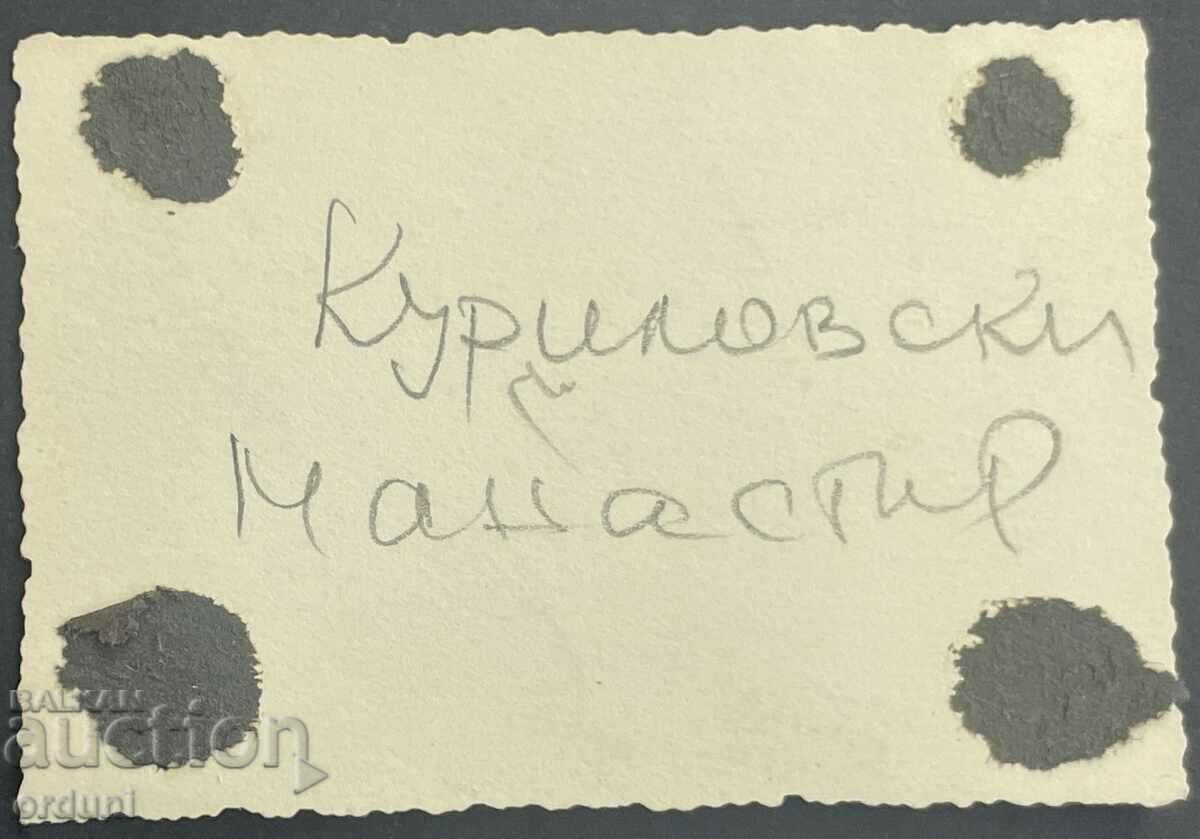 Куриловски
Манастир
BALKAN
auction
orduni